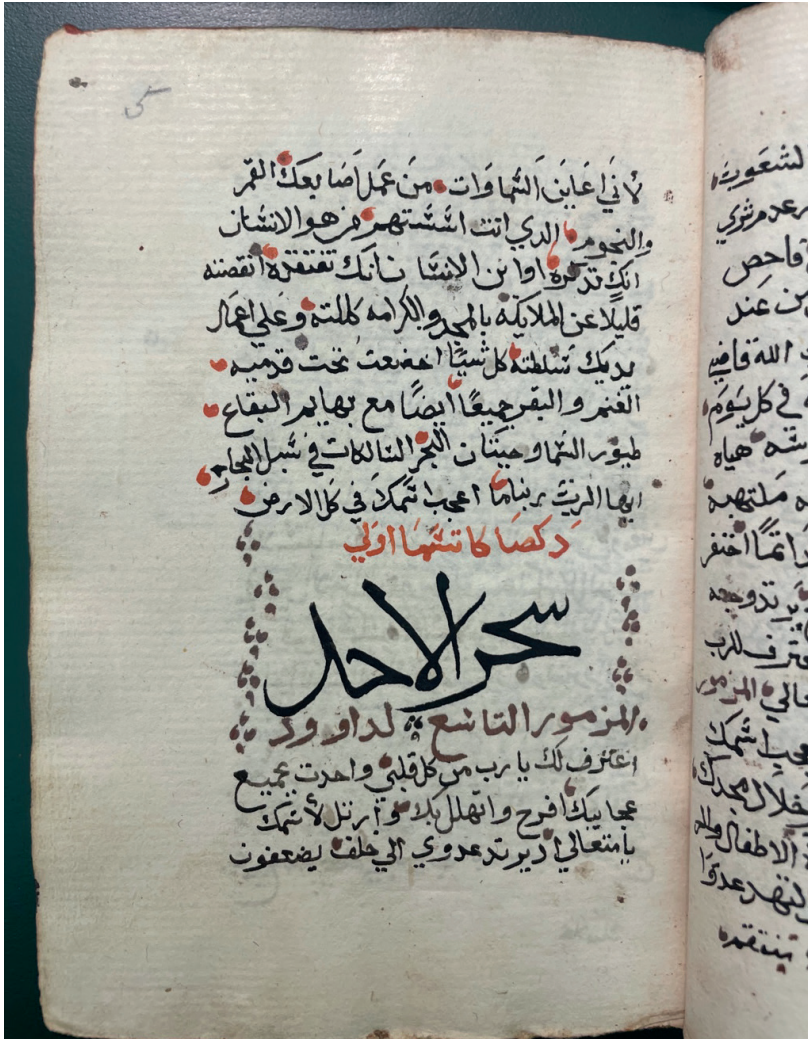 لأني اعاين السماوات من عمل اصابعك القمر
والنجوم الدي انت اسستهم من هو الانسان
انك تدكره او ابن الانسان فانك تفتقده انقصته
قليلاً عن الملايكه بالمجد والكرامه كللته وعلي اعمال
يديك تسلطته كل شياً اخضعت تحت قدميه
الغنم والبقر جميعاً ايضاً مع بهايم البقاع
طيور السما وحيتان البحر السالكات في سبل البحار
ايها الرب ربنا ما اعجب اسمك في كل الارض
دكصا كاتسما اولي
سحر الاحد
المزمور التاسع لداوود
اعترف لك يا رب من كل قلبي واحدت بجميع
عجايبك افرح واتهلل بك وارتل لأسمك
يا متعالي اد يرتد عدوي الي خلف يضعفون
لشعوب
عدو مثوري
فاحص
من عند
الله قاضي
في كل يوم
هياه
ملتهبه
احتفر
يرتد وجعه
اعترف للرب
المزمور
عجب اسمك
جلال مجدك
الاطفال وال
لتهدم عدوا
منتقم